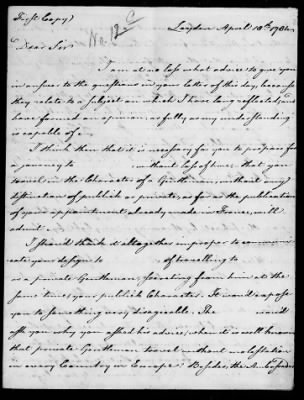 First Copy)
No. 12 C
Leyden April 18th 1781
Dear Sir
I am at no loss what advice to give you
in answer to the questions in your letter of this day, because
they relate to a subject on which I have long reflected, and
have formed an opinion as fully as my understanding
is capable of.
I think then that it is necessary for you to prepare for
a journey to without loss of time: that you
travel in the Character of a Gentleman, without any
distinction of publick or private, as far as the publication
of your appointment already made in France, will
admit.
I should think it altogether improper to communi
cate your design to of travelling to
as a private Gentleman, secreting from him at the
same time, your publick Character. It would expose
you to something very disagreable. The would
ask you why you asked his advice, when it is well known
that private Gentlemen travel without molestation
in every Country in Europe? Besides, the Ambassador